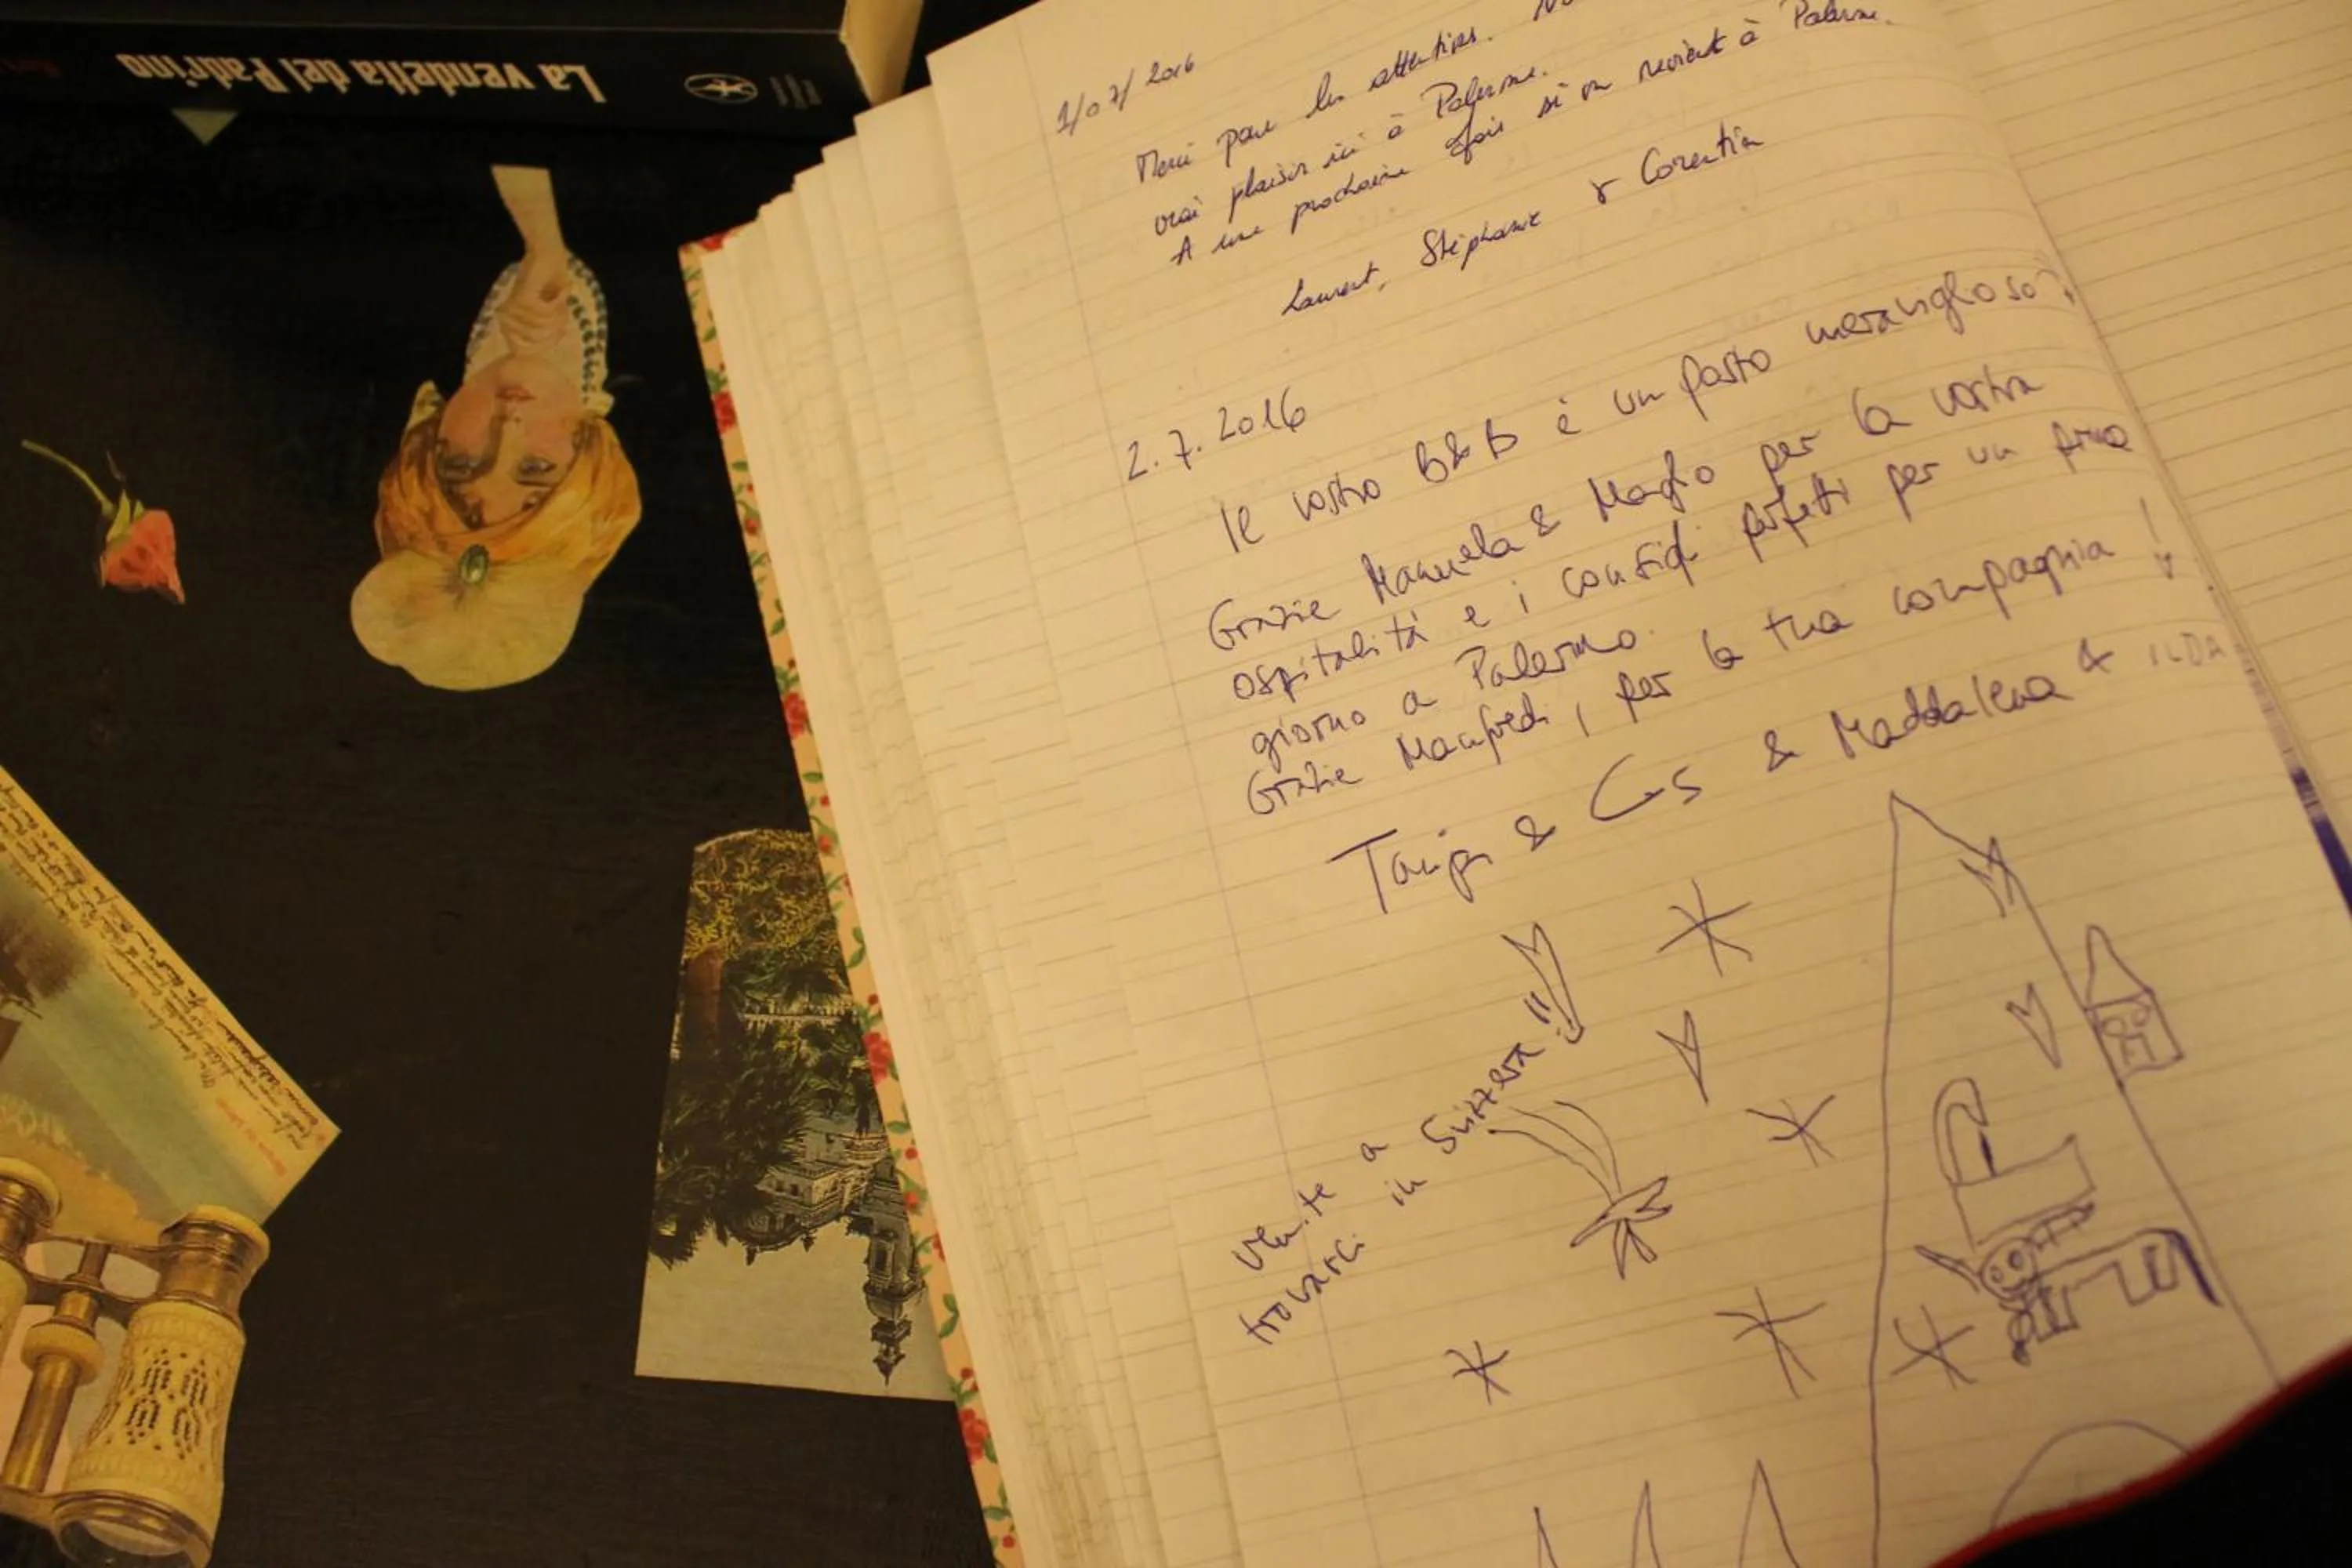 La vendetta del Padrino
1/07/2016
Merci pour les attentions.
vrai plaisir ici à Palerme.
A une prochaine fois si on revient à Palerme.
Laurent, Stéphanie & Corentin
2.7.2016
Il vostro B&B è un posto meraviglioso!
Grazie Manuela & Maglio per la vostra
ospitalità e i consigli perfetti per un primo
giorno a Palermo.
Grazie Manfredi, per la tua compagnia!
& Maddalena & ILDA
Venite a
trovarci in Svizzera!!